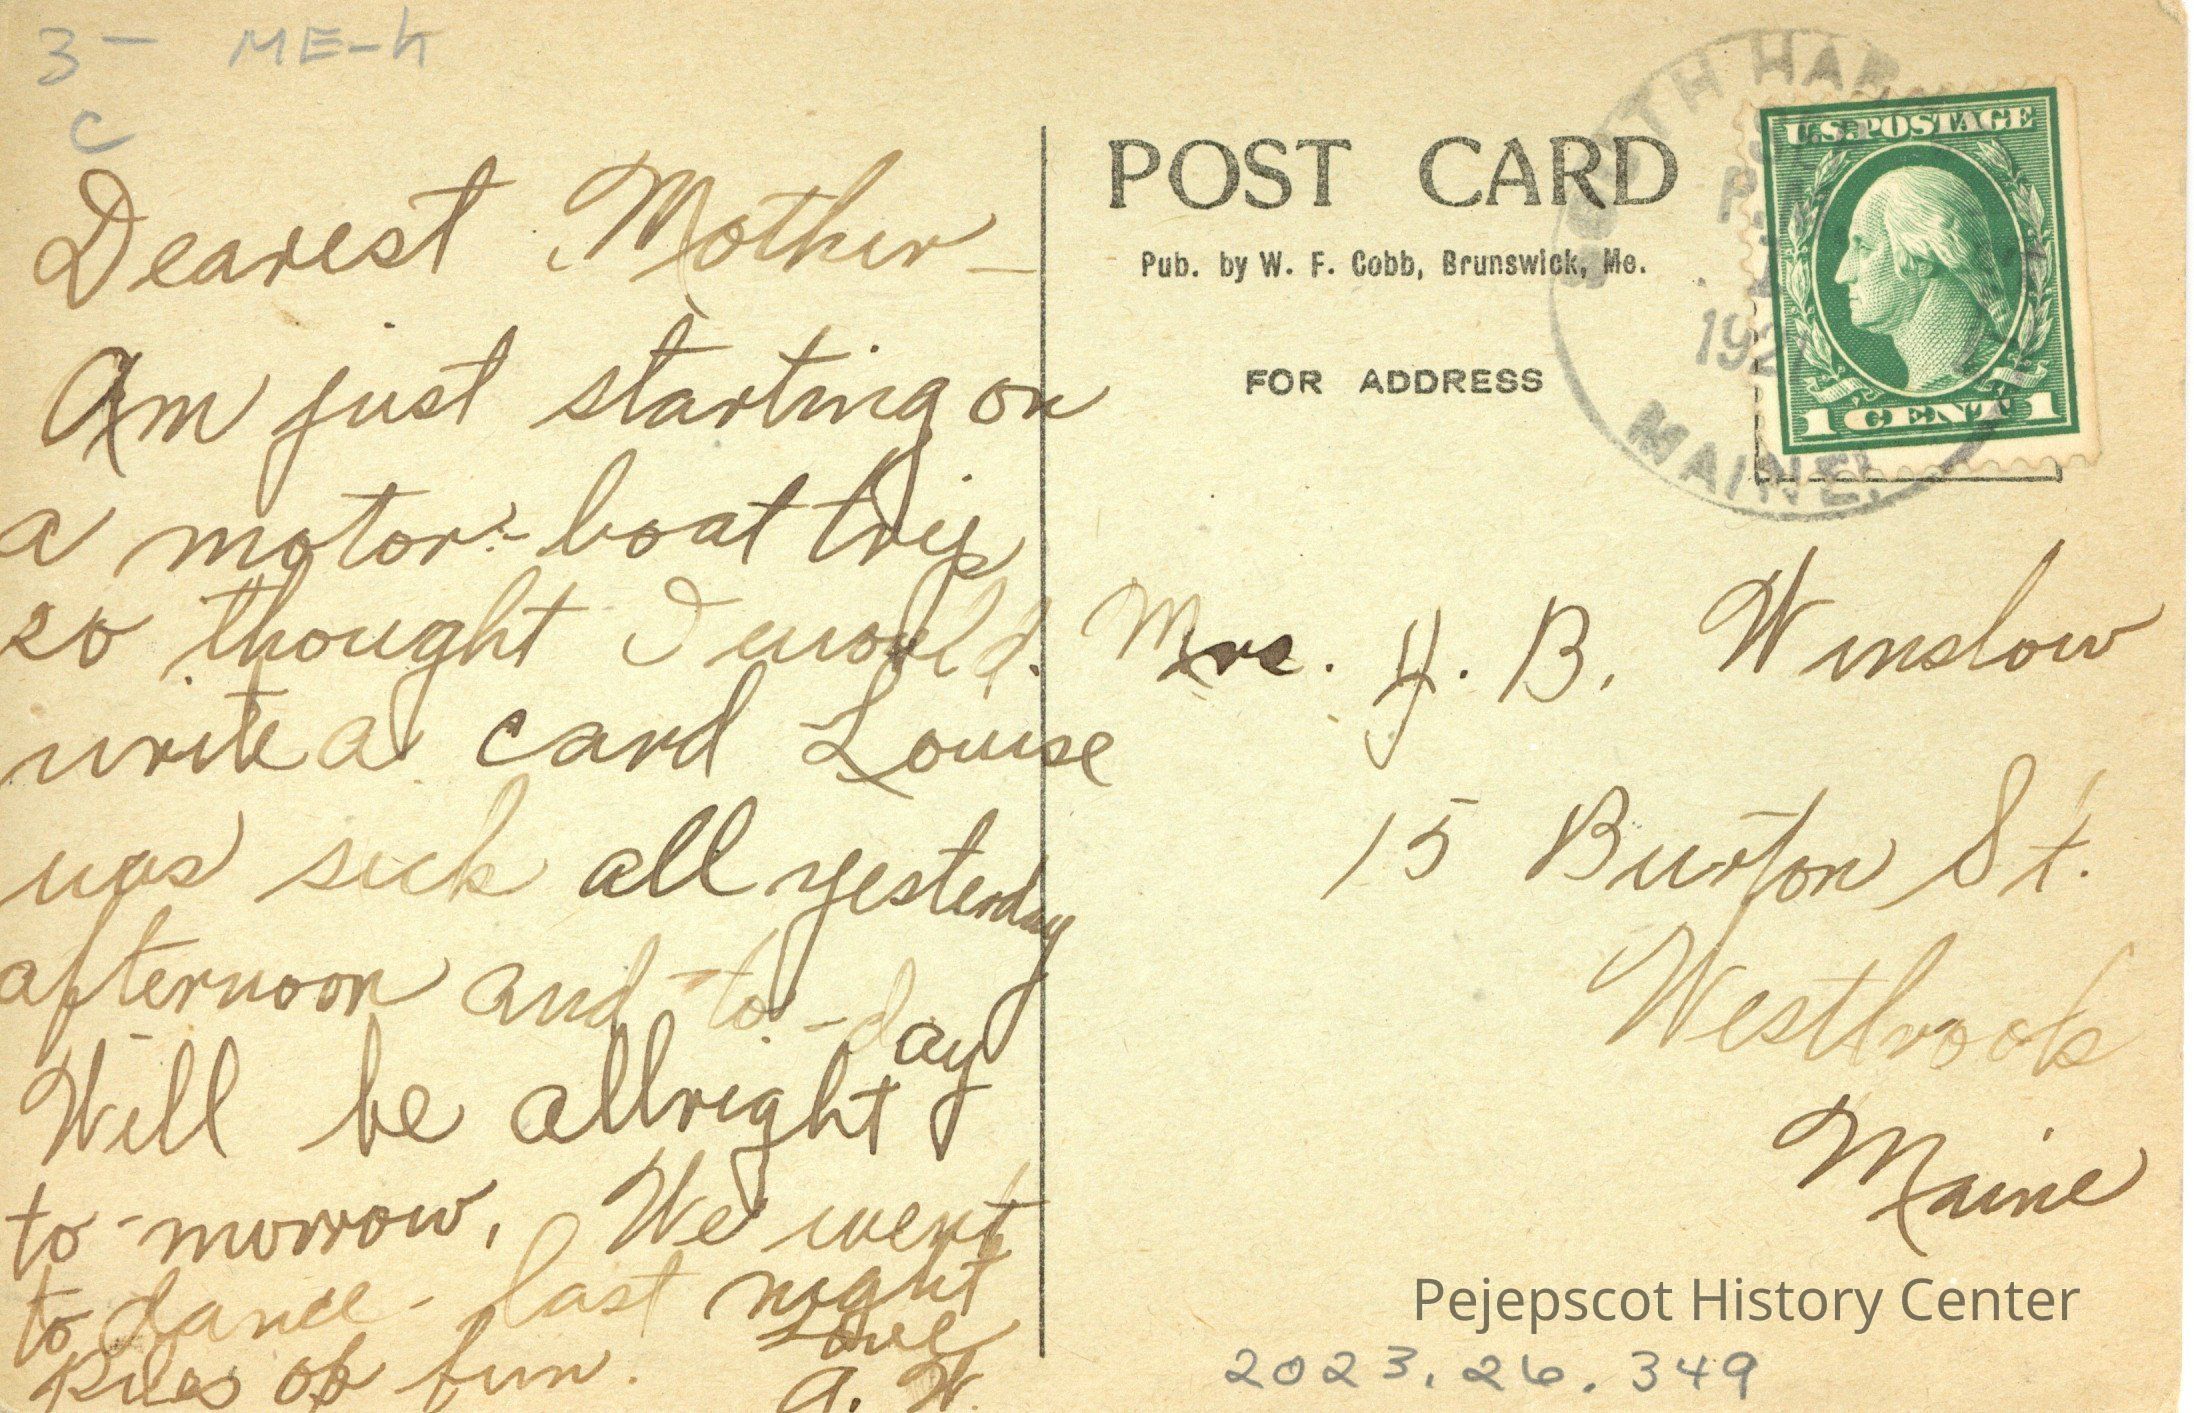 3 - ME-H
C
Dearest Mother -
Am just starting on
a motor-boat trip
so thought I would
write a card Louise
was sick all yesterday
afternoon and to-day
Will be allright
to-morrow. We went
to dance - last night
Piles of fun. Love
A. W.
POST CARD
Pub. by W. F. Cobb, Brunswick, Me.
FOR ADDRESS
SOUTH HAR
P
192
MAINE.
U.S. POSTAGE
1 CENT 1
Mrs. H. B. Winslow
15 Burton St.
Westbrook
Maine
Pejepscot History Center
2023.26.349